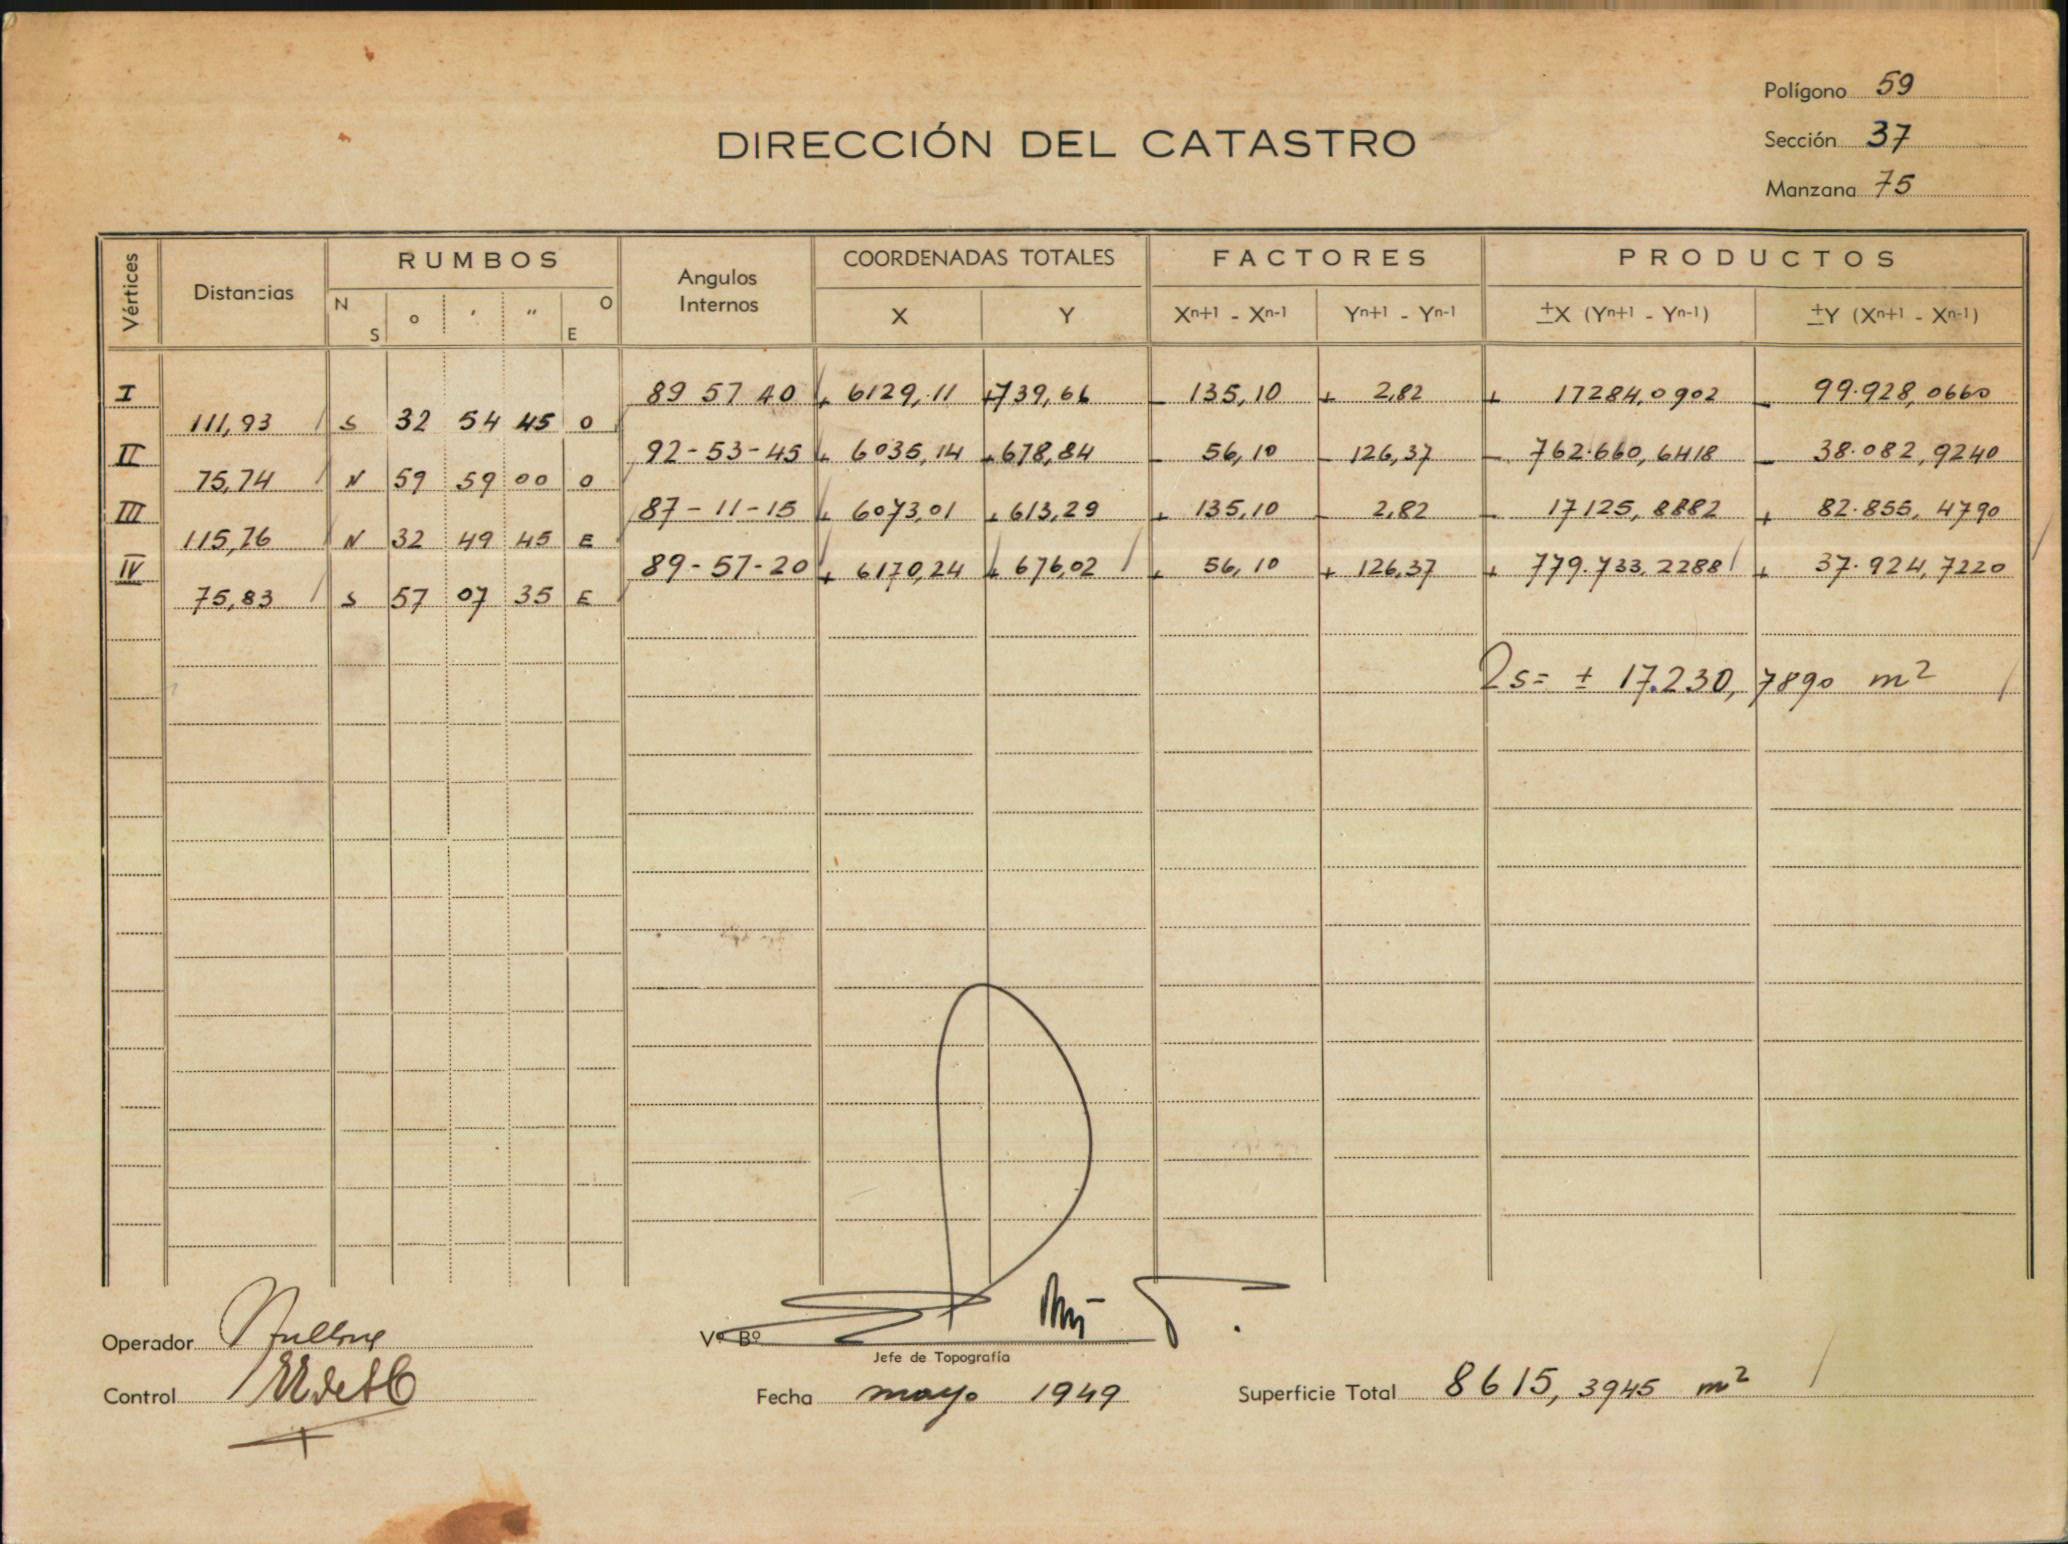 Polígono 59
DIRECCIÓN DEL CATASTRO
Sección 37
Manzana 75
Vértices Distancias RUMBOS Angulos Internos COORDENADAS TOTALES FACTORES PRODUCTOS
N S o ' " O E X Y Xn+1 - Xn-1 Yn+1 - Yn-1 ±X (Yn+1 - Yn-1) ±Y (Xn+1 - Xn-1)
I 89 57 40 + 6129,11 +739,66 - 135,10 + 2,82 + 17284,0902 - 99.928,0660
111,93 S 32 54 45 O
II 92-53-45 + 6035,14 +678,84 - 56,10 - 126,37 - 762.660,6418 - 38.082,9240
75,74 N 59 59 00 O
III 87-11-15 + 6073,01 + 613,29 + 135,10 - 2,82 - 17125,8882 + 82.855,4790
115,76 N 32 49 45 E
IV 89-57-20 + 6170,24 + 676,02 + 56,10 + 126,37 + 779.733,2288 + 37.924,7220
75,83 S 57 07 35 E
2s= ± 17.230,7890 m²
Operador
Vº Bº
Jefe de Topografía
Control
Fecha mayo 1949
Superficie Total 8615,3945 m²